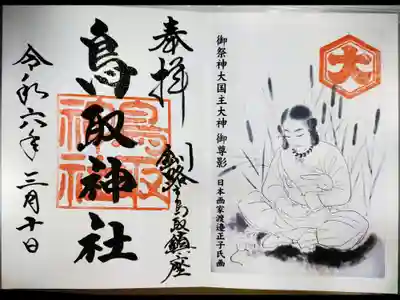 大
御祭神大国主大神 御尊影
日本画家渡邉正子氏画
奉拝
釧路鳥取鎮座
鳥取神社
鳥取
神社
令和六年三月十日